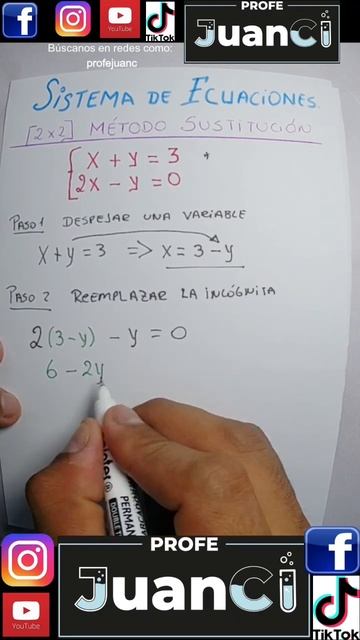 PROFE
JuanCi
YouTube
TikTok
Búscanos en redes como:
profejuanc
SISTEMA DE ECUACIONES
[2x2] MÉTODO SUSTITUCIÓN
X + y = 3 *
2X - y = 0
PASO 1 DESPEJAR UNA VARIABLE
X + y = 3 => X = 3 - y
PASO 2 REEMPLAZAR LA INCÓGNITA
2(3-y) - y = 0
6 - 2y
PERMAN
PROFE
JuanCi
YouTube
TikTok